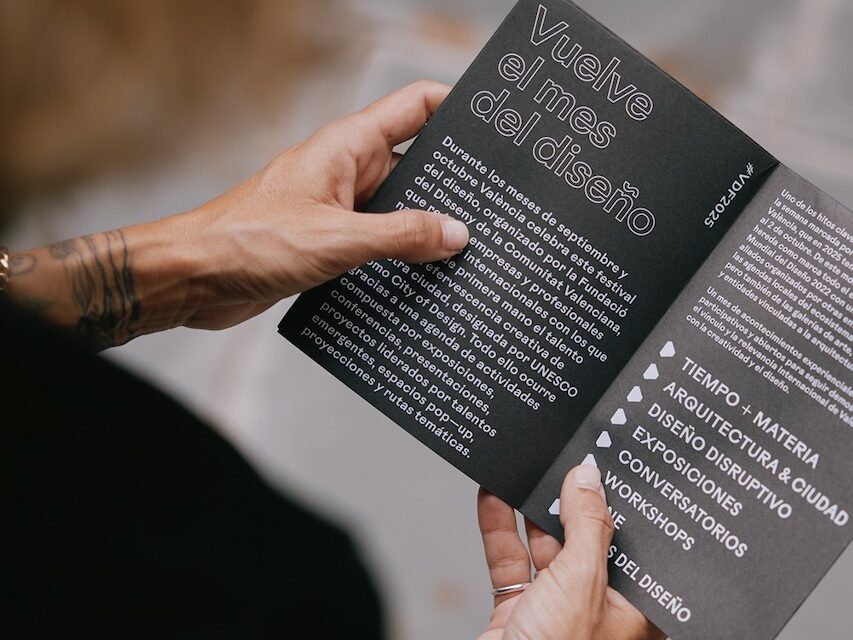 Vuelve
el mes
del diseño
Durante los meses de septiembre y
octubre València celebra este festival
del diseño, organizado por la Fundació
del Disseny de la Comunitat Valenciana,
que empresas y profesionales
internacionales con los que
primera mano el talento
efervescencia creativa de
ciudad, designada por UNESCO
como City of Design. Todo ello ocurre
gracias a una agenda de actividades
compuesta por exposiciones,
conferencias, presentaciones,
proyectos liderados por talentos
emergentes, espacios pop—up,
proyecciones y rutas temáticas.
#VDF2025
Uno de los hitos clave
la semana marcada
València, que en 2025
al 2 de octubre. De este
hereda como marca todo
Mundial del Diseño 2022 con
aliados organizado por otras en
las agendas locales del ecosistema
pero también de las galerías de arte,
y entidades vinculadas a la arquitect
Un mes de acontecimientos experiencial
participativos y abiertos para seguir demos
el vínculo y la relevancia internacional de Val
con la creatividad y el diseño.
TIEMPO + MATERIA
ARQUITECTURA & CIUDAD
DISEÑO DISRUPTIVO
EXPOSICIONES
CONVERSATORIOS
WORKSHOPS
NE
S DEL DISEÑO